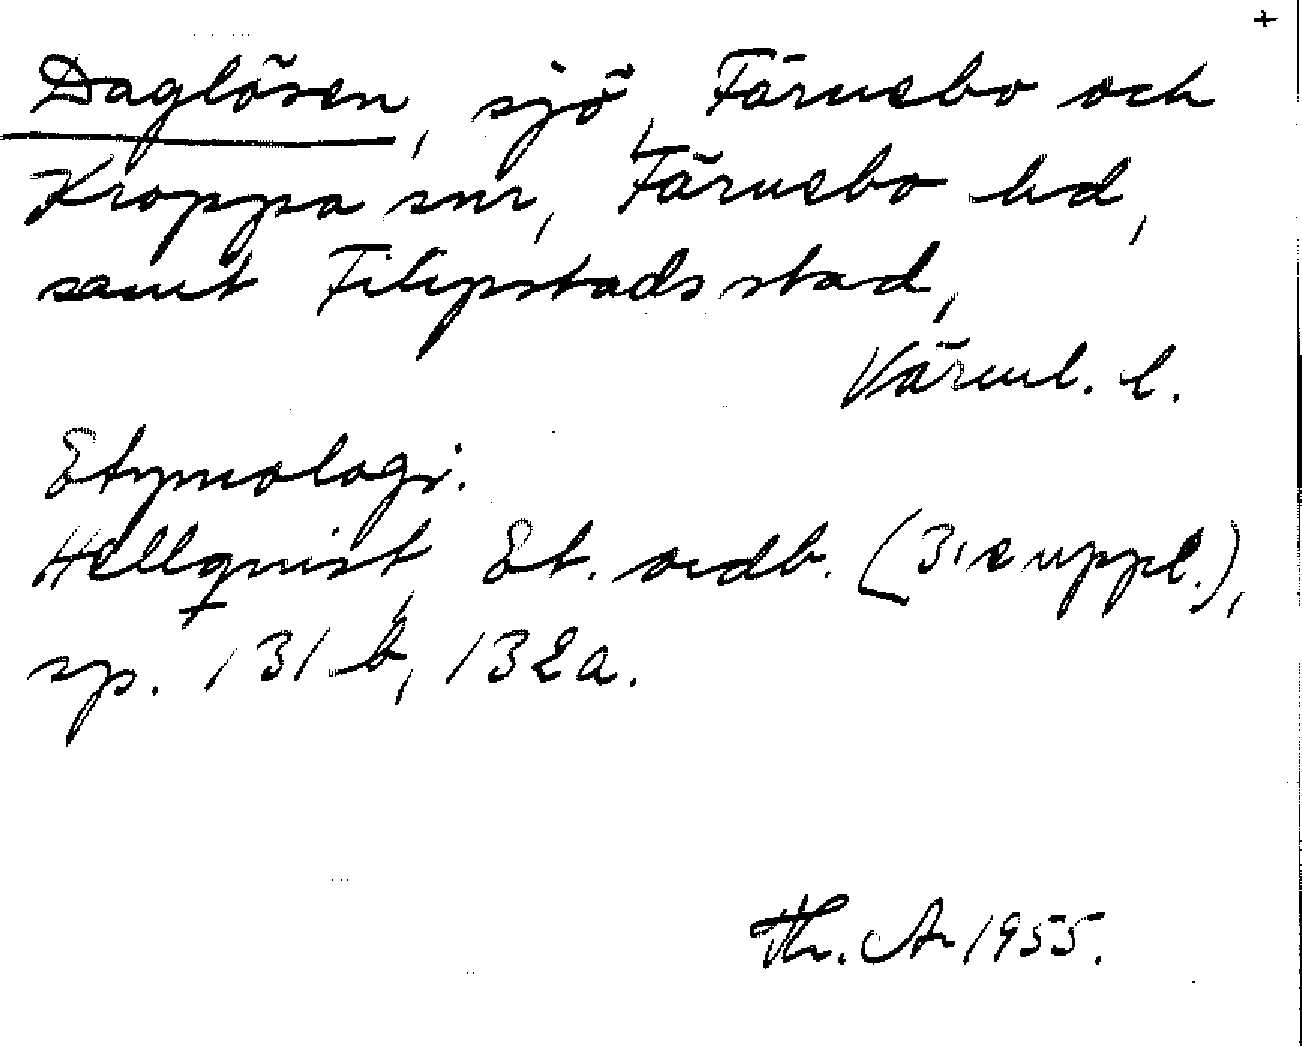 +
Daglösen, sjö, Färnebo och
Kroppa snr, Färnebo hd,
samt Filipstads stad,
Värml. l.
Etymologi.
Hellquist, Et. ordb. (3:e uppl.),
sp. 131 b, 132a.
Th. A 1955.